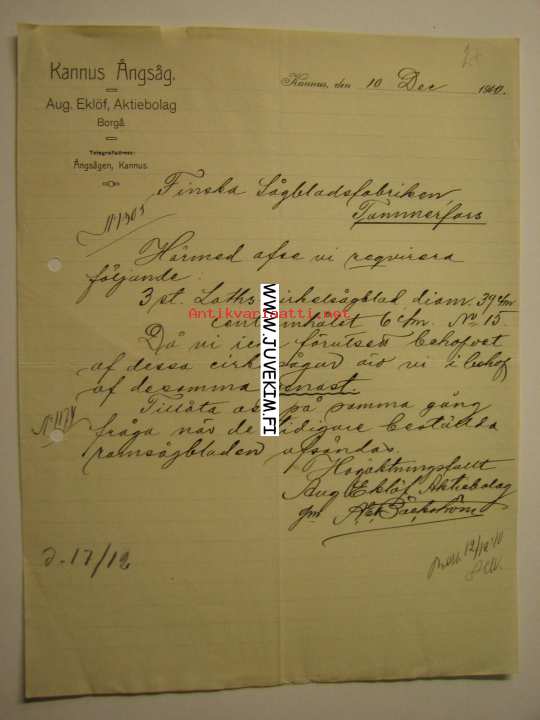 Kannus Ångsåg.
Aug. Eklöf, Aktiebolag
Borgå
Telegrafadress:
Ångsågen, Kannus.
Kannus, den 10 Dec 1910.
Finska Sågbladsfabriken
Tammerfors
N:1303
Härmed afse vi reqvirera
följande:
3 st. Loths cirkelsågblad diam. 39 c/m
Centrumhålet 6 c/m. No 15.
Då vi icke förutsett behofvet
af dessa cirkelsågar äro vi i behof
af desamma senast.
Tillåta oss på samma gång
No 1178
fråga när de tidigare beställda
ramsågbladen afsändas.
Högaktningsfullt
Aug Eklöf Aktiebolag
gm A. E. Bäckström
d. 17/12
12/12 10
WWW.JUVEKIM.FI
Antikvariaatti.net